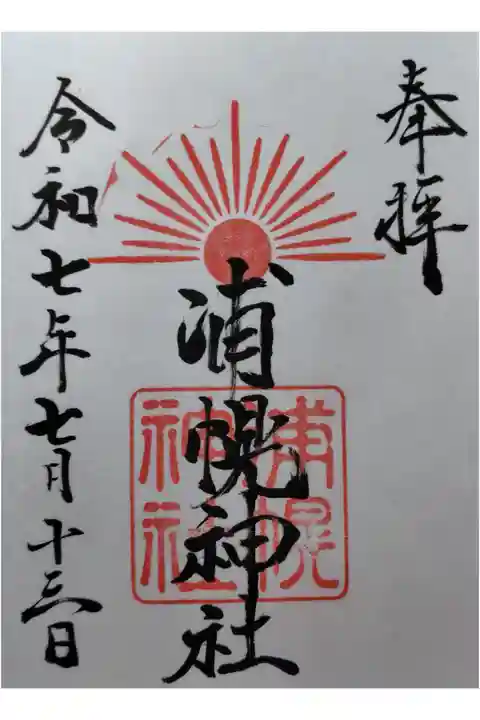 奉拝
浦幌神社
浦幌神社
令和七年七月十三日